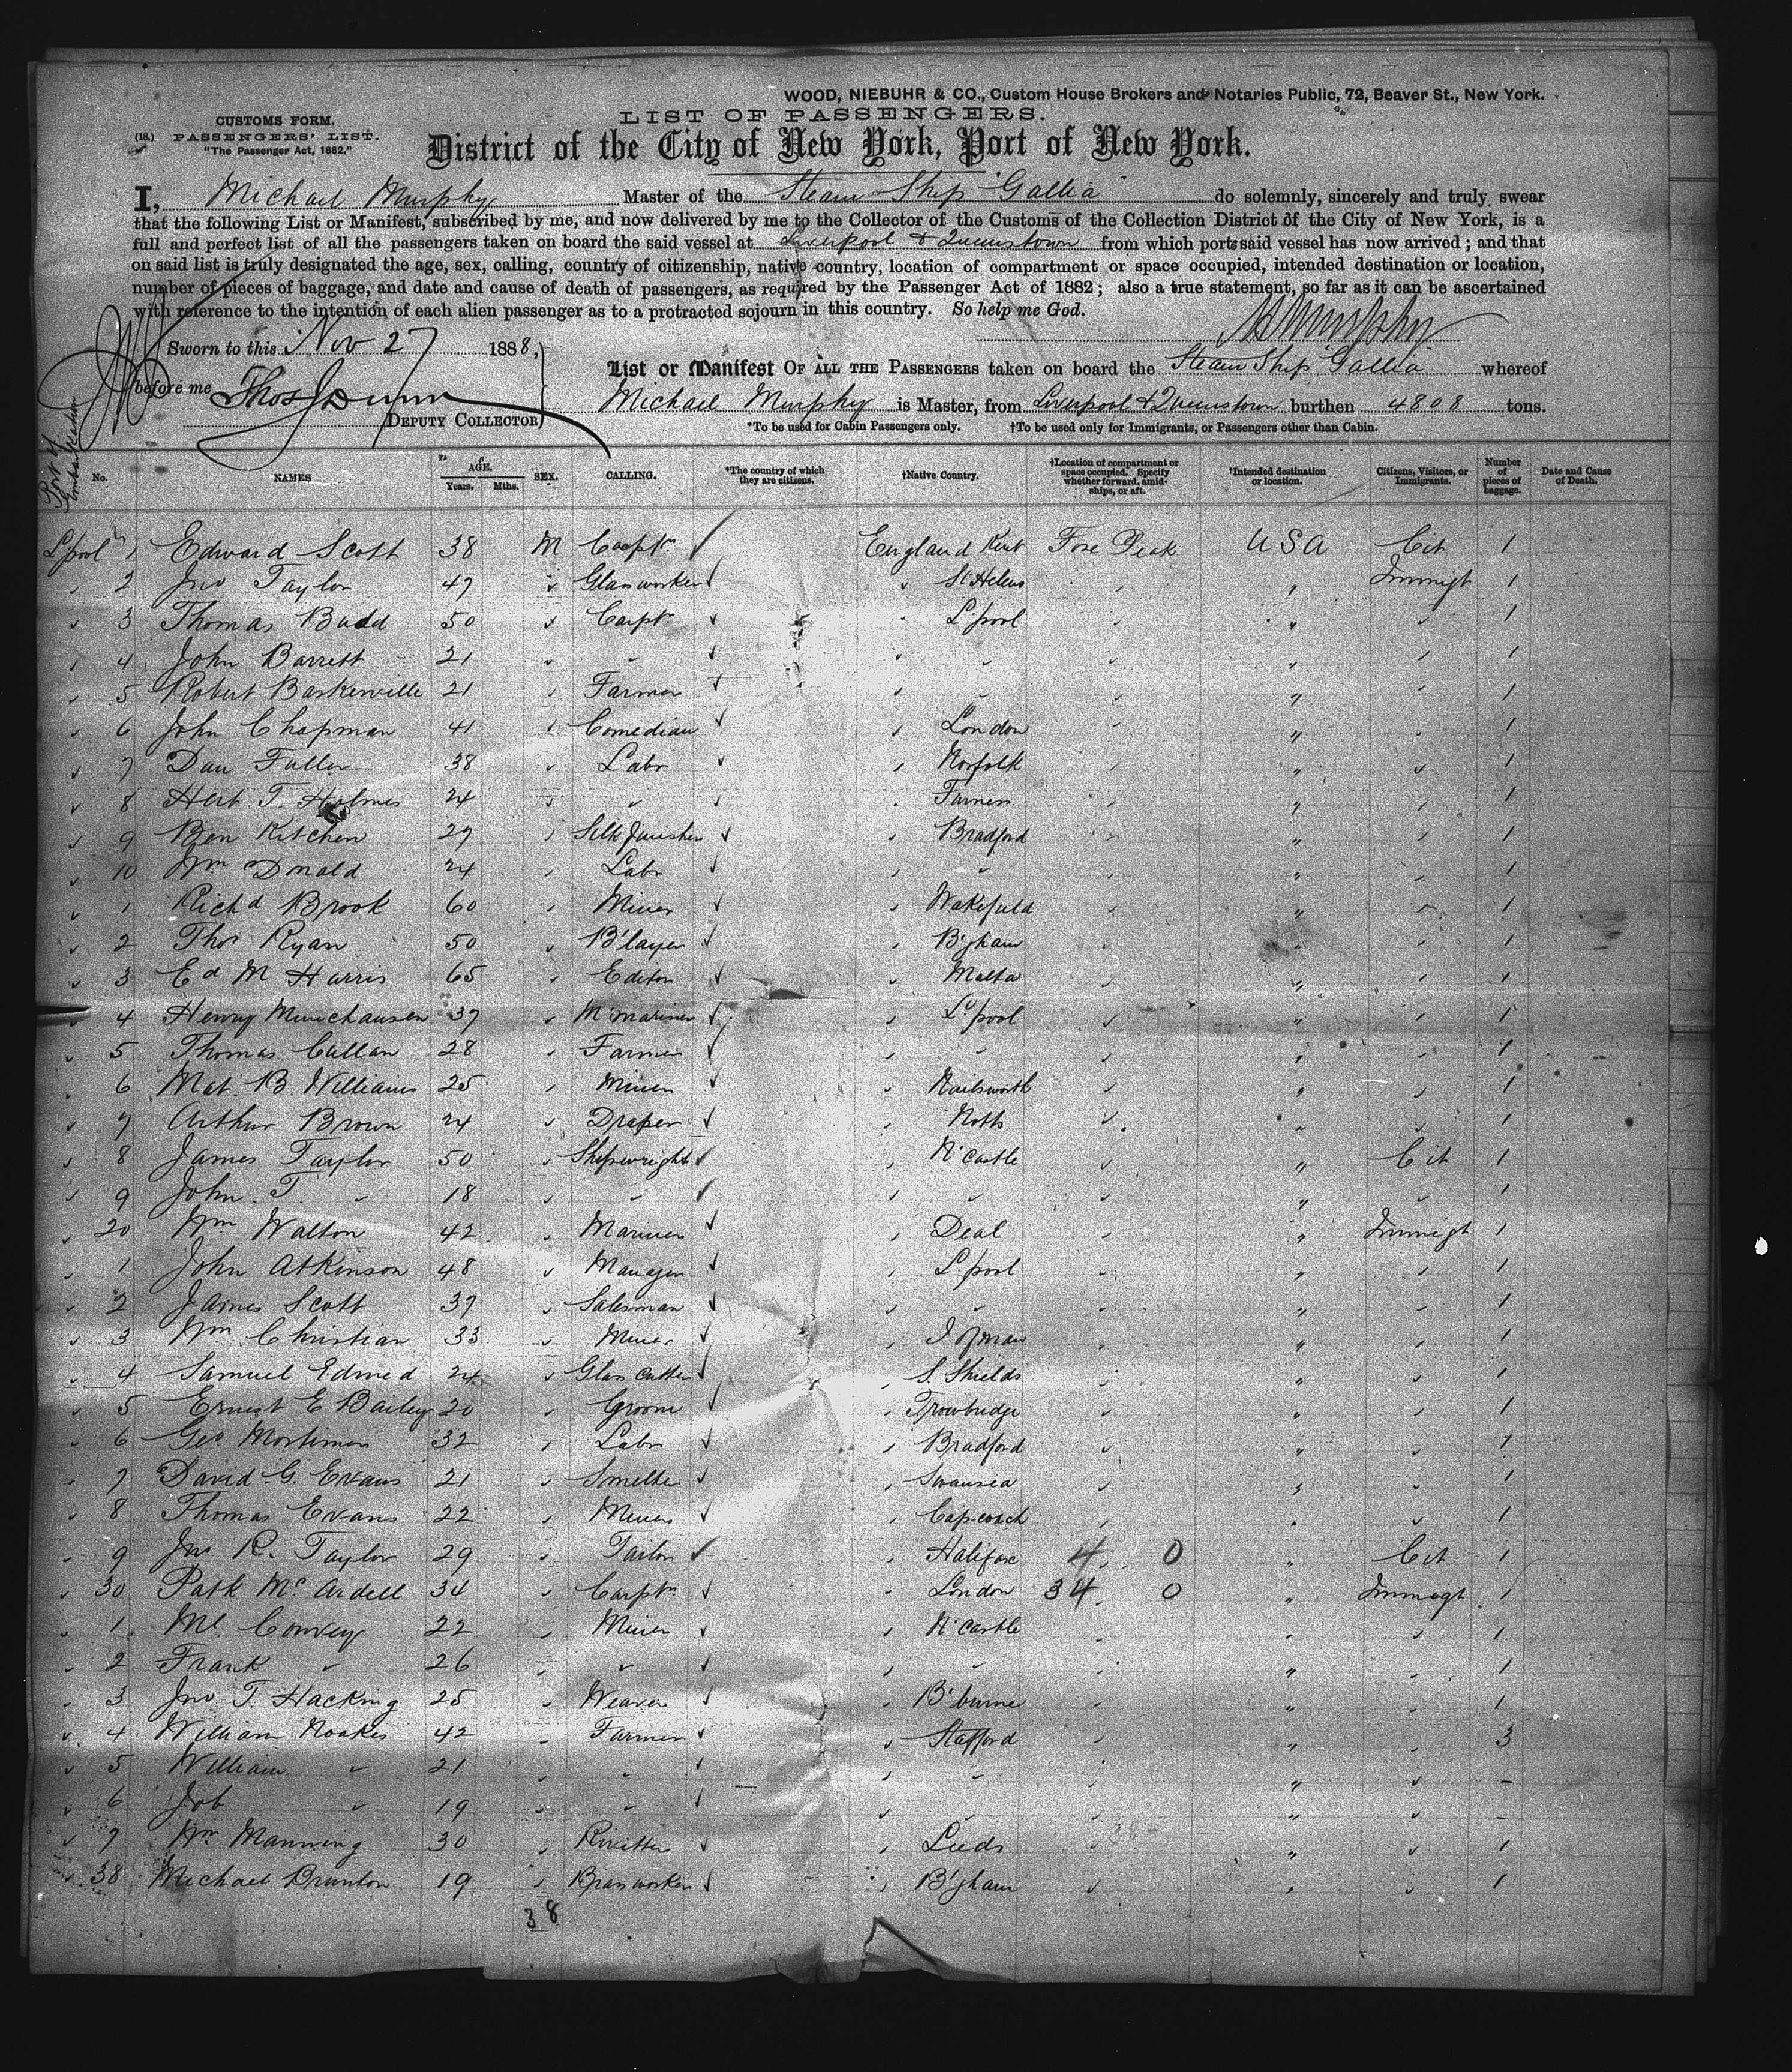 WOOD, NIEBUHR & CO., Custom House Brokers and Notaries Public, 72, Beaver St., New York.
LIST OF PASSENGERS.
CUSTOMS FORM.
(18.) PASSENGERS' LIST.
"The Passenger Act, 1882."
District of the City of New York, Port of New York.
I, Michael Murphy Master of the Steam Ship "Gallia" do solemnly, sincerely and truly swear
that the following List or Manifest, subscribed by me, and now delivered by me to the Collector of the Customs of the Collection District of the City of New York, is a
full and perfect list of all the passengers taken on board the said vessel at Liverpool & Queenstown from which ports said vessel has now arrived; and that
on said list is truly designated the age, sex, calling, country of citizenship, native country, location of compartment or space occupied, intended destination or location,
number of pieces of baggage, and date and cause of death of passengers, as required by the Passenger Act of 1882; also a true statement, so far as it can be ascertained
with reference to the intention of each alien passenger as to a protracted sojourn in this country. So help me God.
M Murphy
Sworn to this Nov 27 1888,
before me Thos J Dunn
DEPUTY COLLECTOR
List or Manifest OF ALL THE PASSENGERS taken on board the Steam Ship "Gallia" whereof
Michael Murphy is Master, from Liverpool & Queenstown burthen 4808 tons.
*To be used for Cabin Passengers only. †To be used only for Immigrants, or Passengers other than Cabin.
Port of Embarkation No. NAMES AGE. Years. Mths. SEX. CALLING. *The country of which they are citizens. †Native Country. †Location of compartment or space occupied. Specify whether forward, amidships, or aft. †Intended destination or location. Citizens, Visitors, or Immigrants. Number of pieces of baggage. Date and Cause of Death.
L'pool 1 Edward Scott 38 M Carptr England Kent Fore Peak USA Cit 1
2 Jno Taylor 47 Glassworker St Helens " Immigt 1
3 Thomas Budd 50 Carptr L'pool " 1
4 John Barrett 21 " " " 1
5 Robert Baskerville 21 Farmer " " 1
6 John Chapman 41 Comedian London " 1
7 Dan Fuller 38 Labr Norfolk " 1
8 Hert T. Holmes 24 " Furness " 1
9 Ben Kitchen 29 Silk finisher Bradford " 1
10 Wm Donald 24 Labr " " 1
1 Richd Brook 60 Miner Wakefield " 1
2 Thos Ryan 50 B'layer B'gham " 1
3 Ed M Harris 65 Editor Malta " 1
4 Henry Munchausen 37 M'mariner L'pool " 1
5 Thomas Callan 28 Farmer " " 1
6 Mat. B Williams 25 Miner Nailsworth " 1
7 Arthur Brown 24 Draper Notts " 1
8 James Taylor 50 Shipwright N'castle " Cit 1
9 John T. " 18 " " " " 1
20 Wm Walton 42 Mariner Deal " Immigt 1
1 John Atkinson 48 Manager L'pool " 1
2 James Scott 37 Salesman " " 1
3 Wm Christian 33 Miner I of man " 1
4 Samuel Edmed 24 Glass cutter S. Shields " 1
5 Ernest E Bailey 20 Groom Trowbridge " 1
6 Geo Mortimer 32 Labr Bradford " 1
7 David G. Evans 21 Smelter Swansea " 1
8 Thomas Evans 22 Miner Capcoch " 1
9 Jno R. Taylor 29 Tailor Halifax 4 0 " Cit 1
30 Patk McArdell 34 Carptr London 34 0 " Immigt 1
1 Ml. Conway 22 Miner N'castle " 1
2 Frank " 26 " " " 1
3 Jno T. Hacking 25 Weaver B'burne " 1
4 William Noakes 42 Farmer Stafford " 3
5 William " 21 " " " -
6 Job " 19 " " " -
7 Wm Manning 30 Rivetter Leeds " 1
38 Michael Brunton 19 Brassworker B'gham " 1
38